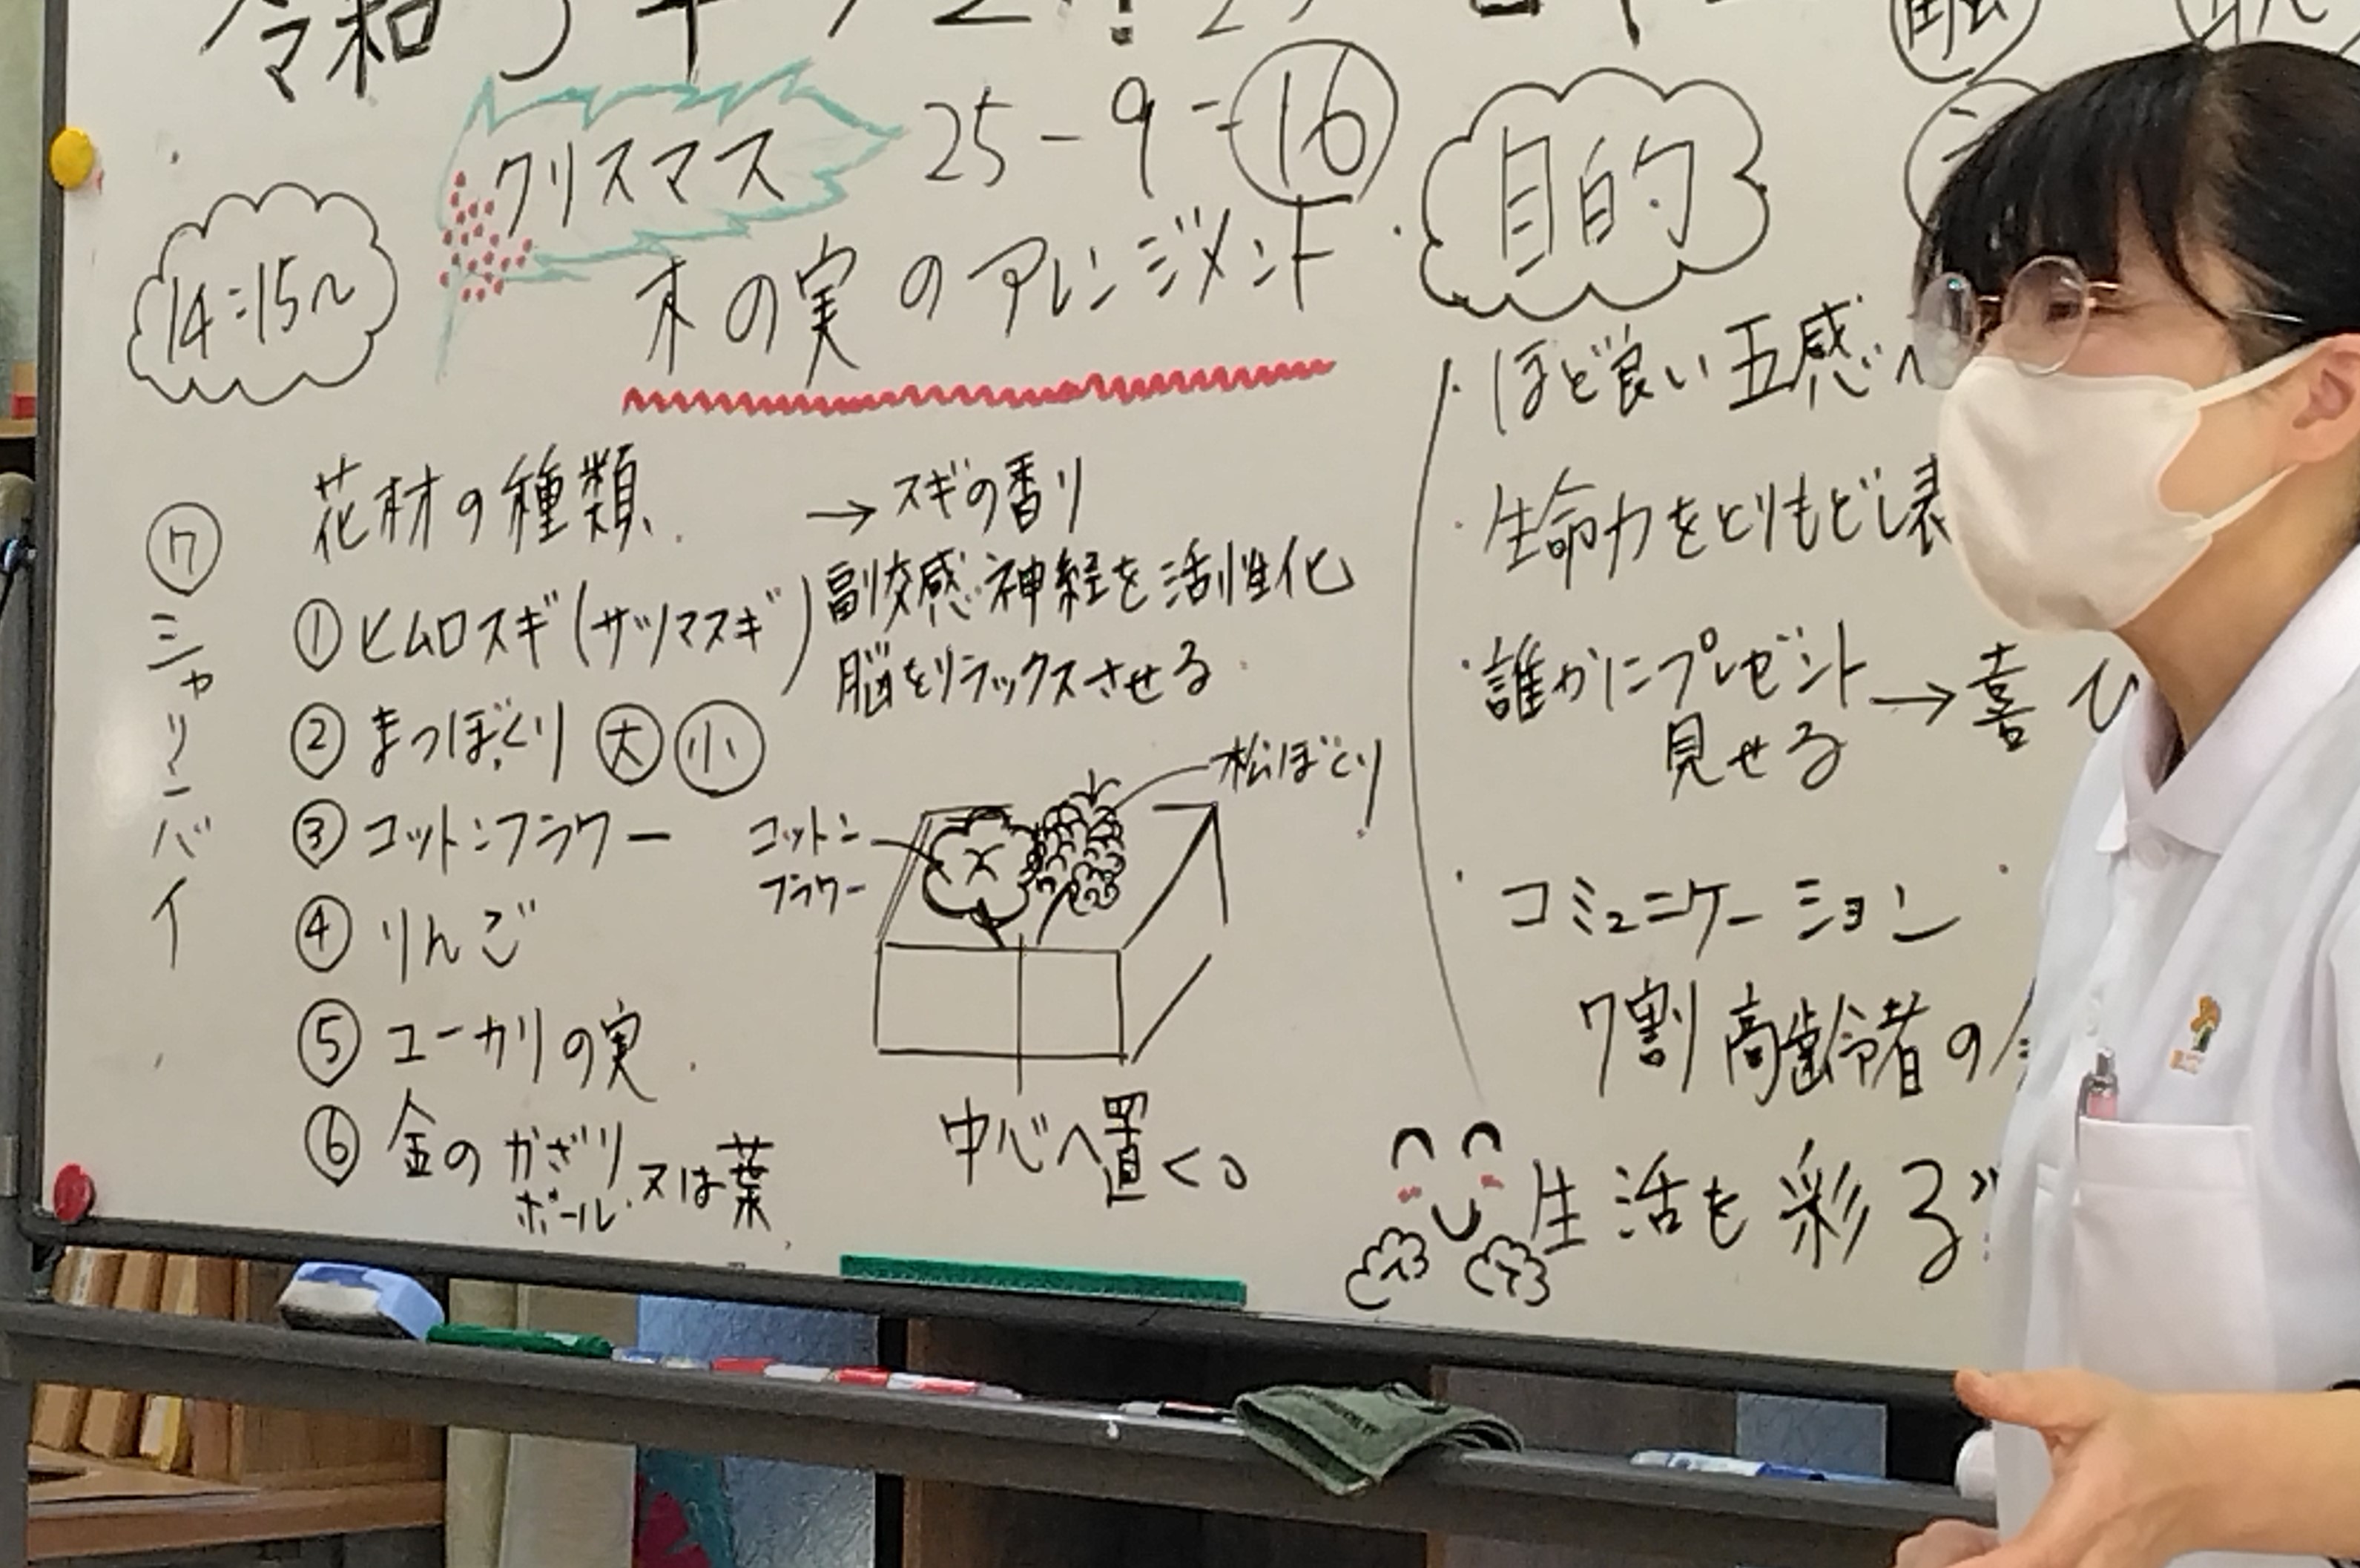 令和
クリスマス
25-9=16
14:15〜
木の実のアレンジメント
花材の種類
①ヒムロスギ(サツマスギ)
②まつぼくり 大 小
③コットンフラワー
④りんご
⑤ユーカリの実
⑥金のかざりボール.又は葉
⑦シャリンバイ
→スギの香り
副交感神経を活性化
脳をリラックスさせる
コットン
フラワー
松ぼくり
中心へ置く。
目的
・ほど良い五感へ
・生命力をとりもどし表
・誰かにプレゼント
見せる→喜び
・コミュニケーション
7割高齢者の
生活を彩る